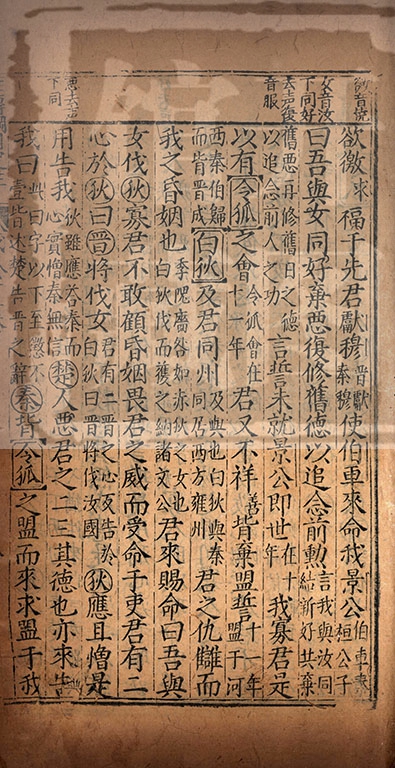 徼音僥
女音汝
下同好
去声復
音服
惡去声
下同
欲徼求福于先君獻穆晉獻秦穆使伯車來命我景公伯車秦桓公子
曰吾與女同好棄惡復修舊德以追念前勳言我與汝同結新好共棄
舊惡再修舊日之德以追念前人之功言誓未就景公即世在十年我寡君是
以有令狐之會令狐會在十一年君又不祥善背棄盟誓十一年盟于河
西秦伯歸而背晉成白狄及君同州及與也白狄與秦同居西方雍州君之仇讎而
我之昏姻也季隗廧咎如赤狄之女也白狄伐而獲之納諸文公君來賜命曰吾與
女伐狄寡君不敢顧昏姻畏君之威而受命于吏君有二
心於狄曰晉將伐女君有二晉之心及告於白狄曰晉將伐汝國狄應且憎是
用告我狄雖應答秦而心實憎秦無信楚人惡君之二三其德也亦來告
我曰此曰字以下至懲不壹皆述楚告晉之辭秦背令狐之盟而來求盟于我